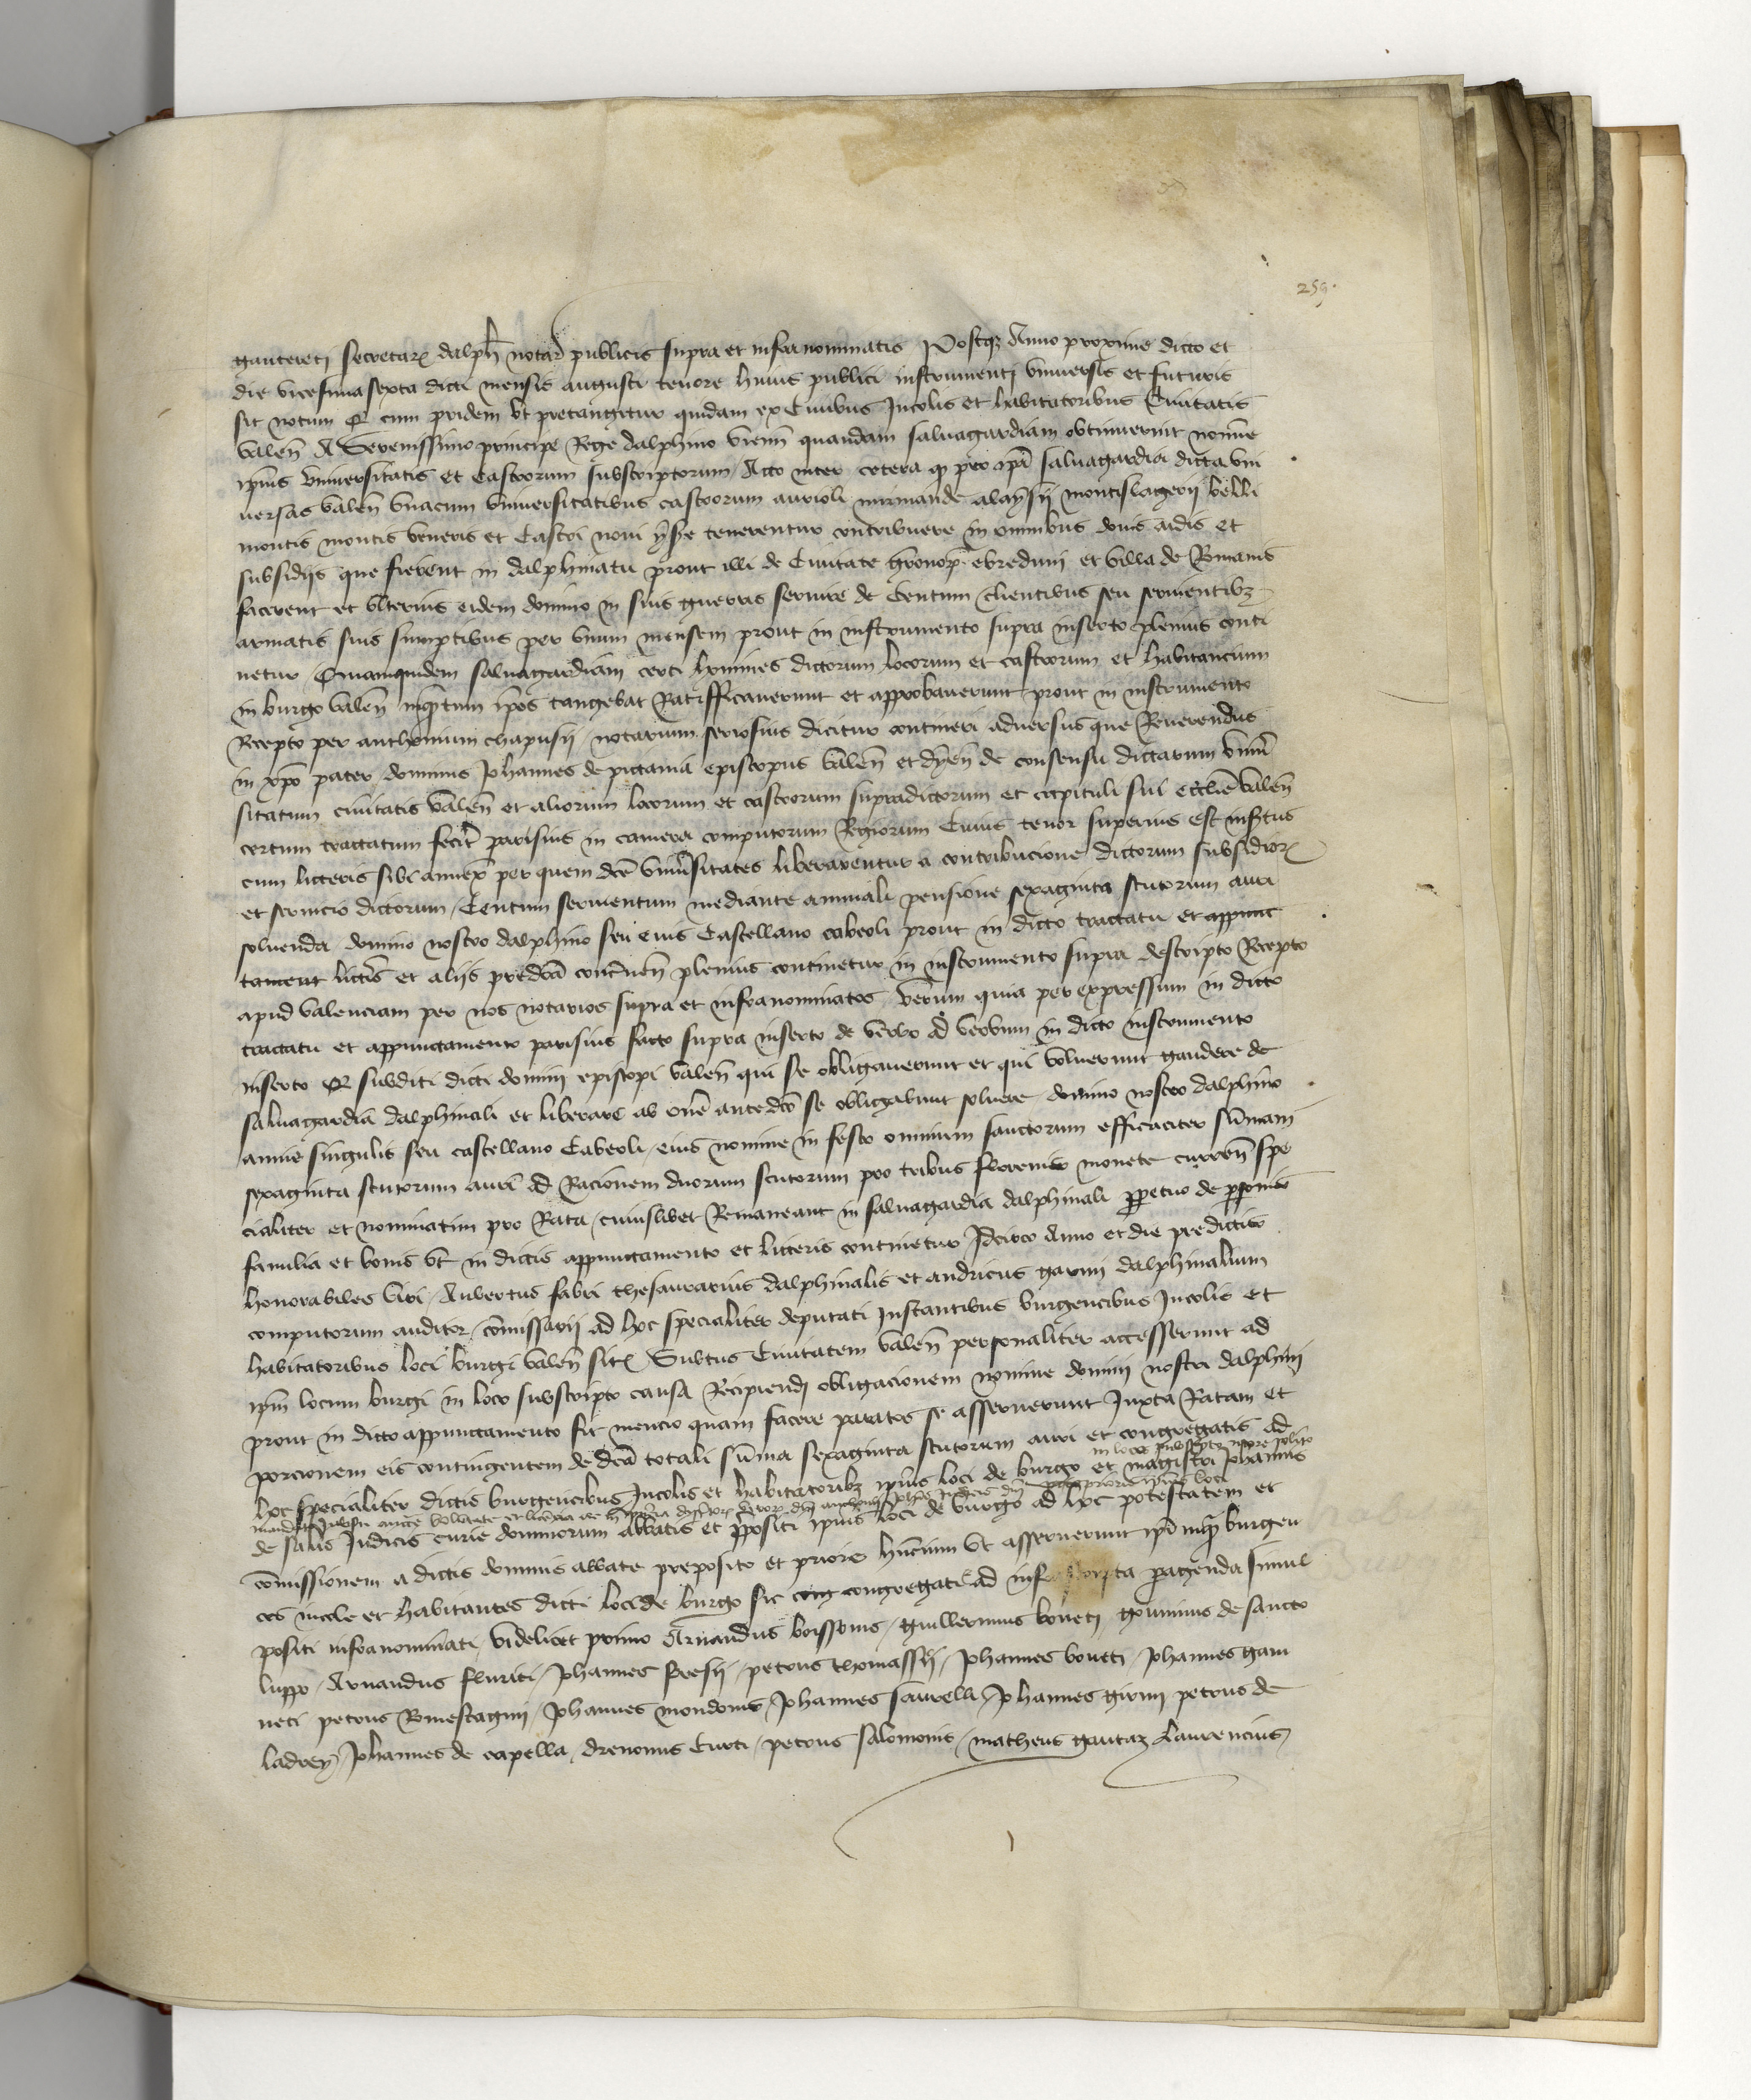 259.
gautereti secretar dalph notar publicis supra et infra nominatis Postq Anno proxime dicto et
die vicesima sexta dicti mensis augusti tenore huius publici instrumenti vniuersis et futuris
sit notum Q cum pridem vt pretangitur quidam ex Ciuibus Incolis et habitatoribus Ciuitatis
valen A Serenissimo principe Rege dalphino vienn quandam saluagardiam obtinuerint nomine
ipius vniuersitatis et Castrorum subscriptorum Acto inter cetera q pro ipa saluagardia dicta vni
uersitas valen vnacum vniuersitatibus castrorum aurioli mirmande alaysii montislagerii belli
montis montis veneris et Castri noui yse tenerentur contribuere in omnibus donis aidis et
subsidiis que fierent in dalphinatu prout illi de Ciuitate gronop ebreduni et villa de Romanis
facerent et vlterius eidem domino in suis guerris seruire de Centum clientibus seu seruientibz
armatis suis sumptibus per vnum mensem prout in instrumento supra inserto plenius conti
netur Quamquidem saluagardiam certi homines dictorum locorum et castrorum et habitancium
in burgo valen inqtum ipos tangebat Ratifficauerunt et approbauerunt prout in instrumento
Recepto per anthonium chapusii notarium seriosius dicitur contineri aduersus que Reuerendus
in xpo pater dominus Johannes de pictauia episcopus valen et dyen de consensu dictarum vniu
sitatum ciuitatis valen et aliorum locorum et castrorum supradictorum et capituli sui ecclie valen
certum tractatum fecit parisius in camera computorum Regiorum Cuius tenor superius est insertus
cum litteris sibi annex per quem dce vniusitates liberarentur a contribucione dictorum subsidior
et seruicio dictorum Centum seruientum mediante annuali pensione sexaginta scutorum auri
soluenda domino nostro dalphino seu eius Castellano cabeoli prout in dicto tractatu et appunc
tament litteris et aliis predca concnen plenius continetur in instrumento supra descripto Recepto
apud valenciam per nos notarios supra et infranominatos verum quia per expressum in dicto
tractatu et appunctamento parisius facto supra inserto de verbo ad verbum in dicto instrumento
inserto Q subditi dicti domini episcopi valen qui se obligauerunt et qui voluerunt gaudere de
saluagardia dalphinali et liberare ab one antedco se obligabunt soluere domino nostro dalphino
annis singulis seu castellano Cabeoli eius nomine in festo omnium sanctorum efficaciter summam
sexaginta scutorum auri ad Racionem duorum scutorum pro tribus florenis monete curren spe
cialiter et nominatim pro Rata cuiuslibet Remaneant in saluagardia dalphinali ppetuo de psonis
familia et bonis vt in dictis appunctamento et litteris continetur Idcirco Anno et die predictis
honorabiles viri Aubertus fabri thesaurarius dalphinalis et andricus garini dalphinalium
computorum auditor comissarii ad hoc specialiter deputati Instantibus burgencibus Incolis et
habitatoribus loci burgi valen sit Subtus Ciuitatem valen personaliter accesserunt ad
ipm locum burgi in loco subscripto causa Recipiendi obligacionem nomine domini nostri dalphini
prout in dicto appunctamento fit mencio quam facere paratos se asseruerunt Juxta Ratam et
porcionem eis contingentem de dca totali summa sexaginta scutorum auri et congregatis ad
in loco subscripto more solito
hoc specialiter dictis burgencibus Incolis et habitatoribz ipius loci de burgo et magistri Johannis
de salis Judicis curie dominorum abbatis et ppositi ipius loci de burgo ad hoc potestatem et
comissionem a dictis dominis abbate preposito et priore huncium vt asseruerunt ipi inq burgen
ces incole et habitantes dicti loci de burgo sic cong congregati ad infrascripta pagenda simul
positi infranominati videlicet primo Arnandus boissonis guillermus boueti goninus de sancto
luppo Arnandus fluriti Johannes fresii petrus thomassii Johannes boueti Johannes gau
neti petrus Romestagni Johannes mondonis Johannes saurelli Johannes girini petrus de
ladrey Johannes de capella drenonus Curti petrus salomonis matheus gautaz Laurencius